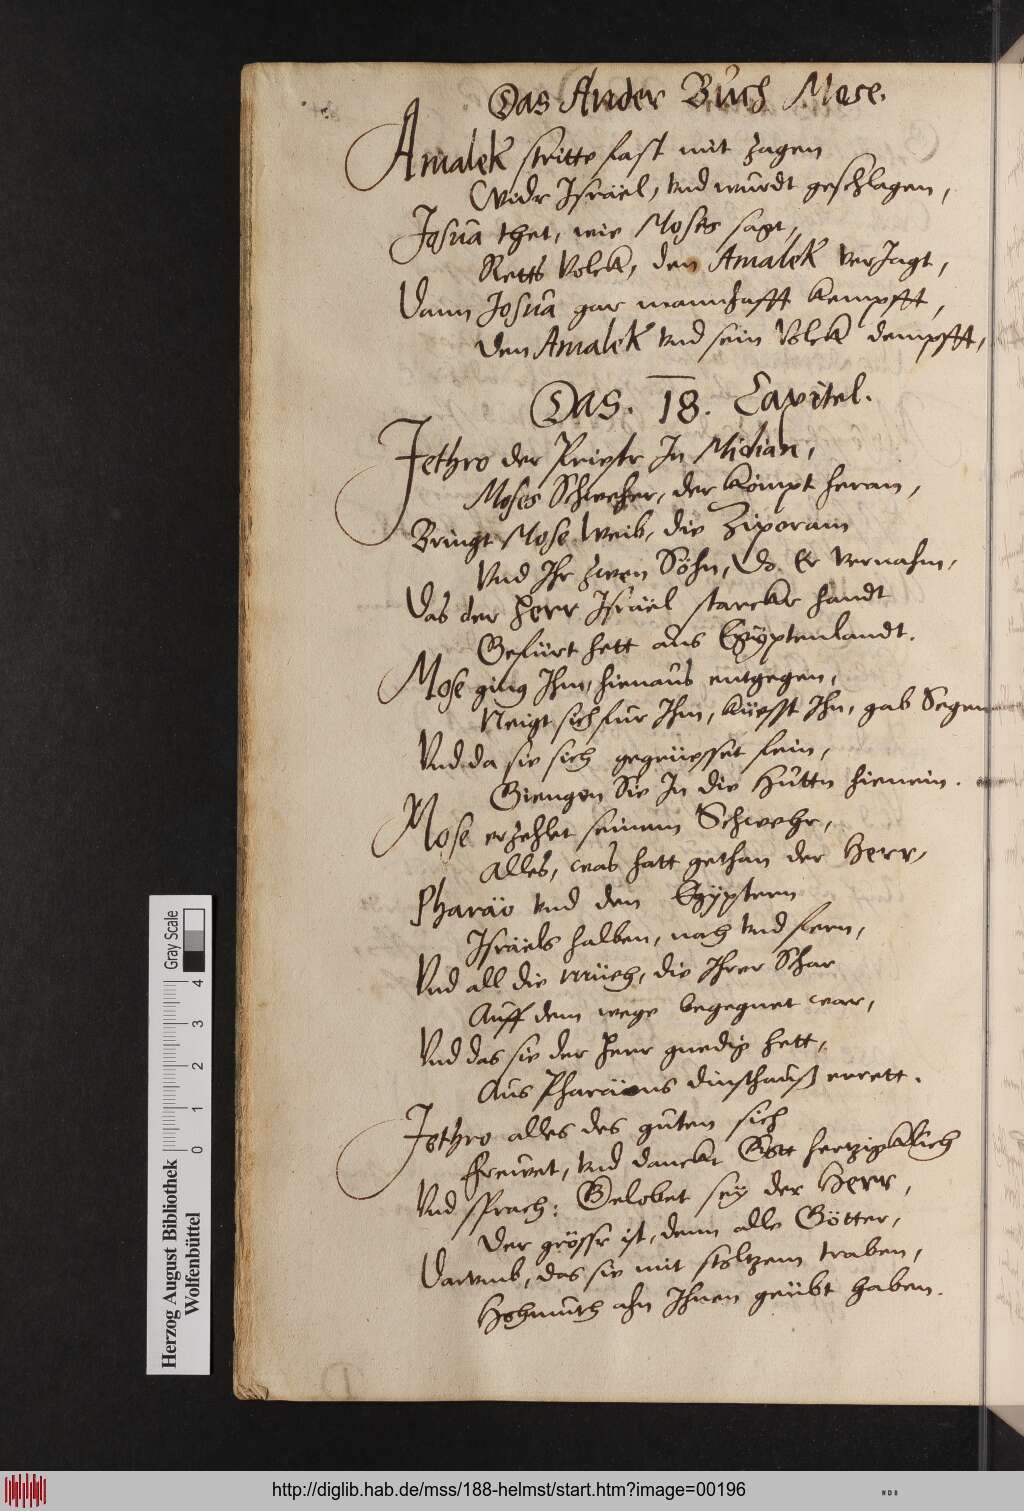 Das Ander Buch Mose.
Amalek stritte fast mit zagen
Widr Israël, vnd wurdt geschlagen,
Josua thet, wie Moses sagt,
Retts Volck, den Amalek verJagt,
Dann Josua gar mannhafft kempfft,
Den Amalek vnd sein Volck dempfft,
Das. 18. Capitel.
Jethro der Priestr In Midian,
Moses Schweher, der kömpt heran,
Bringt Mose Weib, die Ziporam
Vnd Ihr zwen Söhn, Do Er vernahm,
Das der Herr Israël starcker handt
Gefürt hett aus Egÿptenlandt.
Mose ging Ihm, hienaus entgegen,
Neigt sich fur Ihm, küesst Ihn, gab Segen
Vnd da sie sich gegrüesset fein,
Giengen Sie In die Hüttn hienein.
Mose erzehlet seinem Schwehr,
Alles, was hatt gethan der Herr,
Pharäo vnd den Egÿptern
Israëls halben, nah vnd fern,
Vnd all die müeh, die Ihrer Schar
Auff dem wege begegnet war,
Vnd das sie der Herr gnedig hett,
Aus Pharäons dinsthauß errett.
Jethro alles des guten sich
frewet, vnd danckt Gott hertzigklich
Vnd sprach: Gelobet seÿ der Herr,
Der grössr ist, denn alle Götter,
Darumb, das sie mit stoltzem traben,
Hohmuth ahn Ihnen geübt haben.
Gray Scale
0 1 2 3 4
Herzog August Bibliothek
Wolfenbüttel
http://diglib.hab.de/mss/188-helmst/start.htm?image=00196